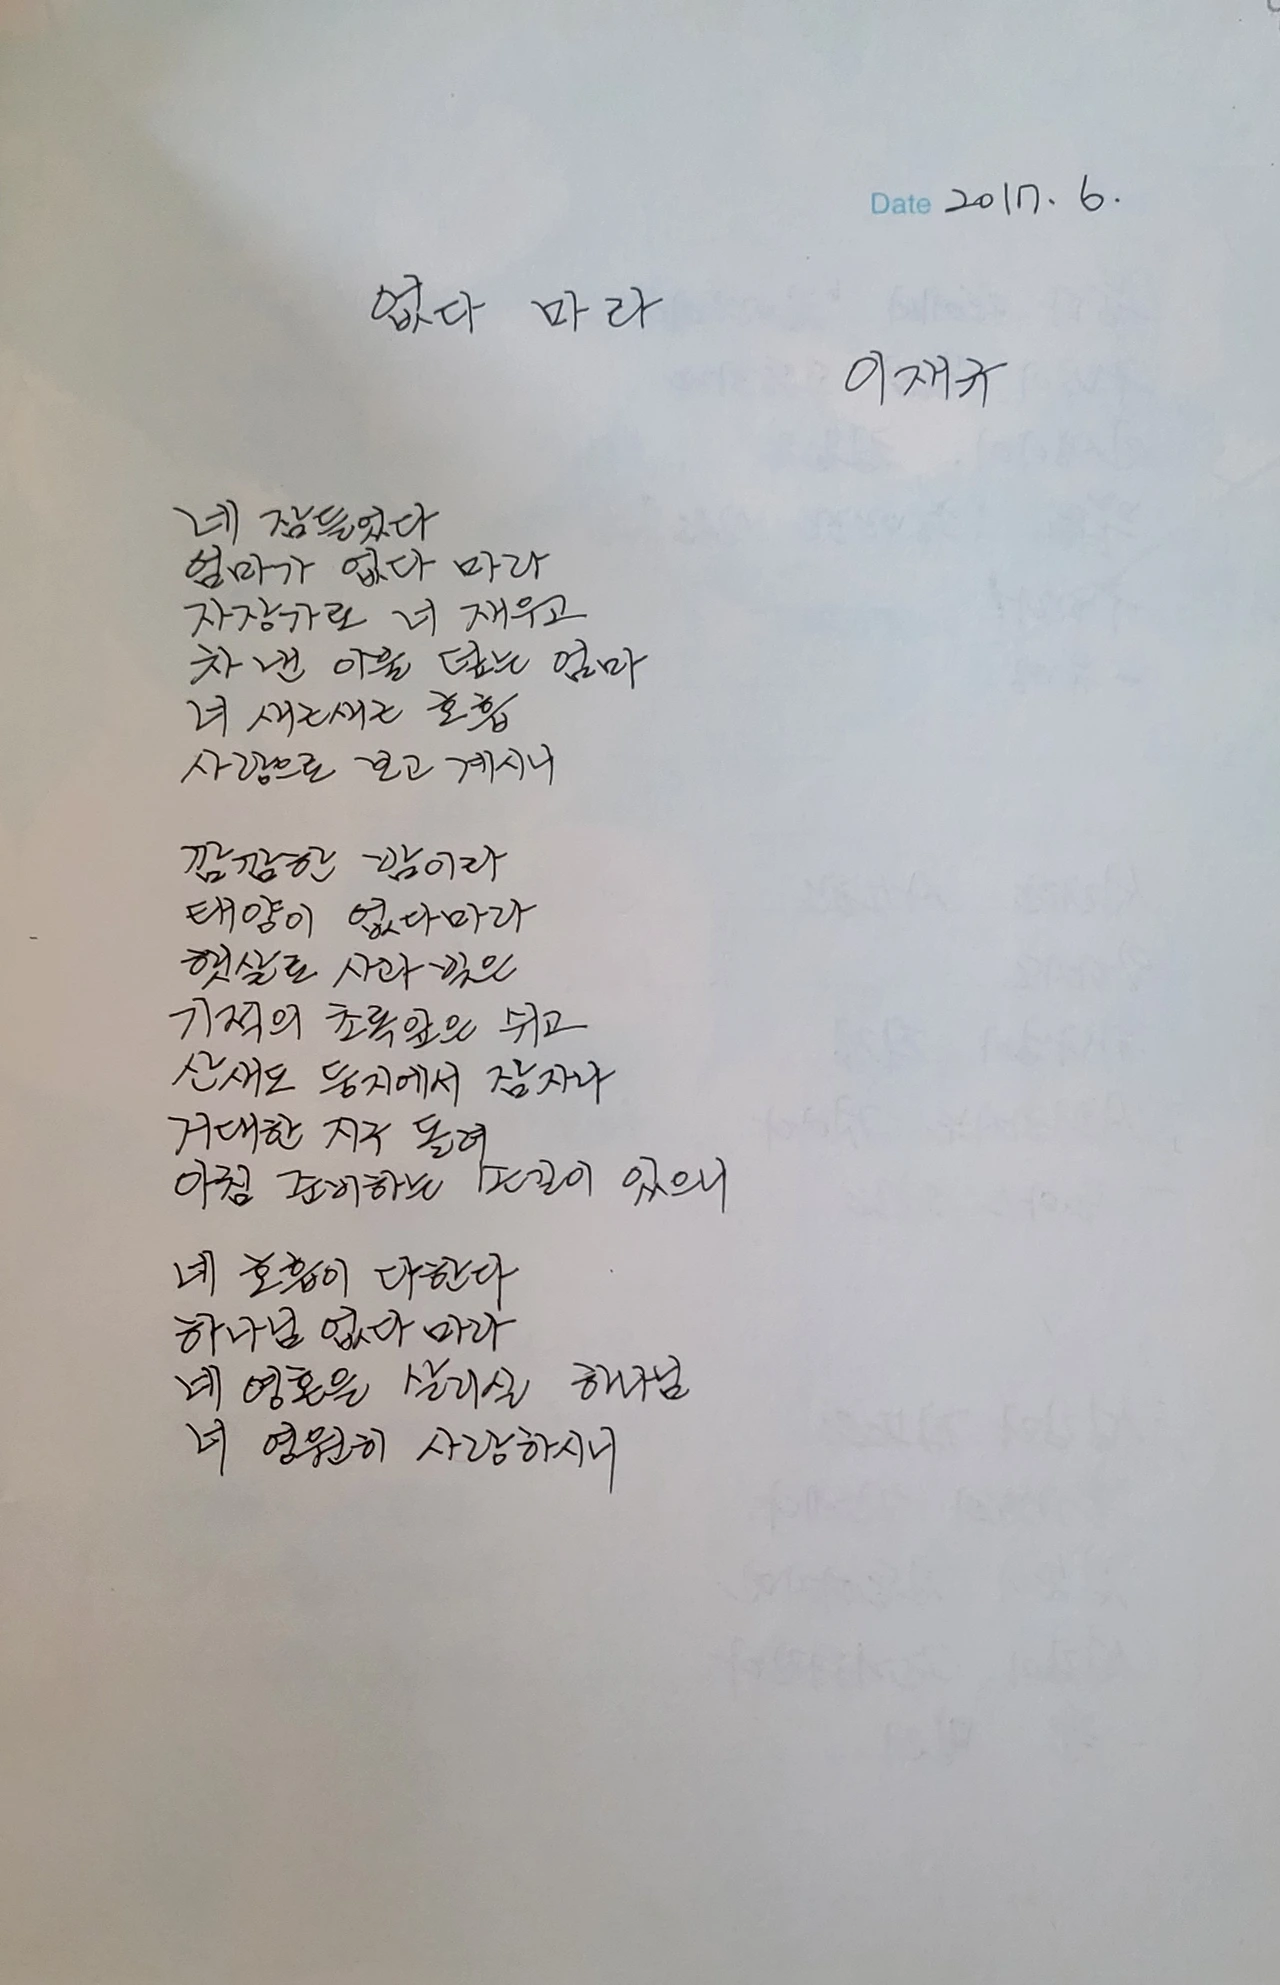 Date 2017. 6.
없다 마라
이재규
네 잠들었다
엄마가 없다 마라
자장가로 너 재우고
차 낸 이불 덮는 엄마
너 새근새근 호흡
사랑으로 보고 계시니
깜깜한 밤이라
태양이 없다마라
햇살로 사과 빚은
기적의 초록잎은 쉬고
산새도 둥지에서 잠자나
거대한 지구 돌려
아침 준비하는 손길이 있으니
네 호흡이 다한다
하나님 없다 마라
네 영혼을 살리실 하나님
너 영원히 사랑하시니